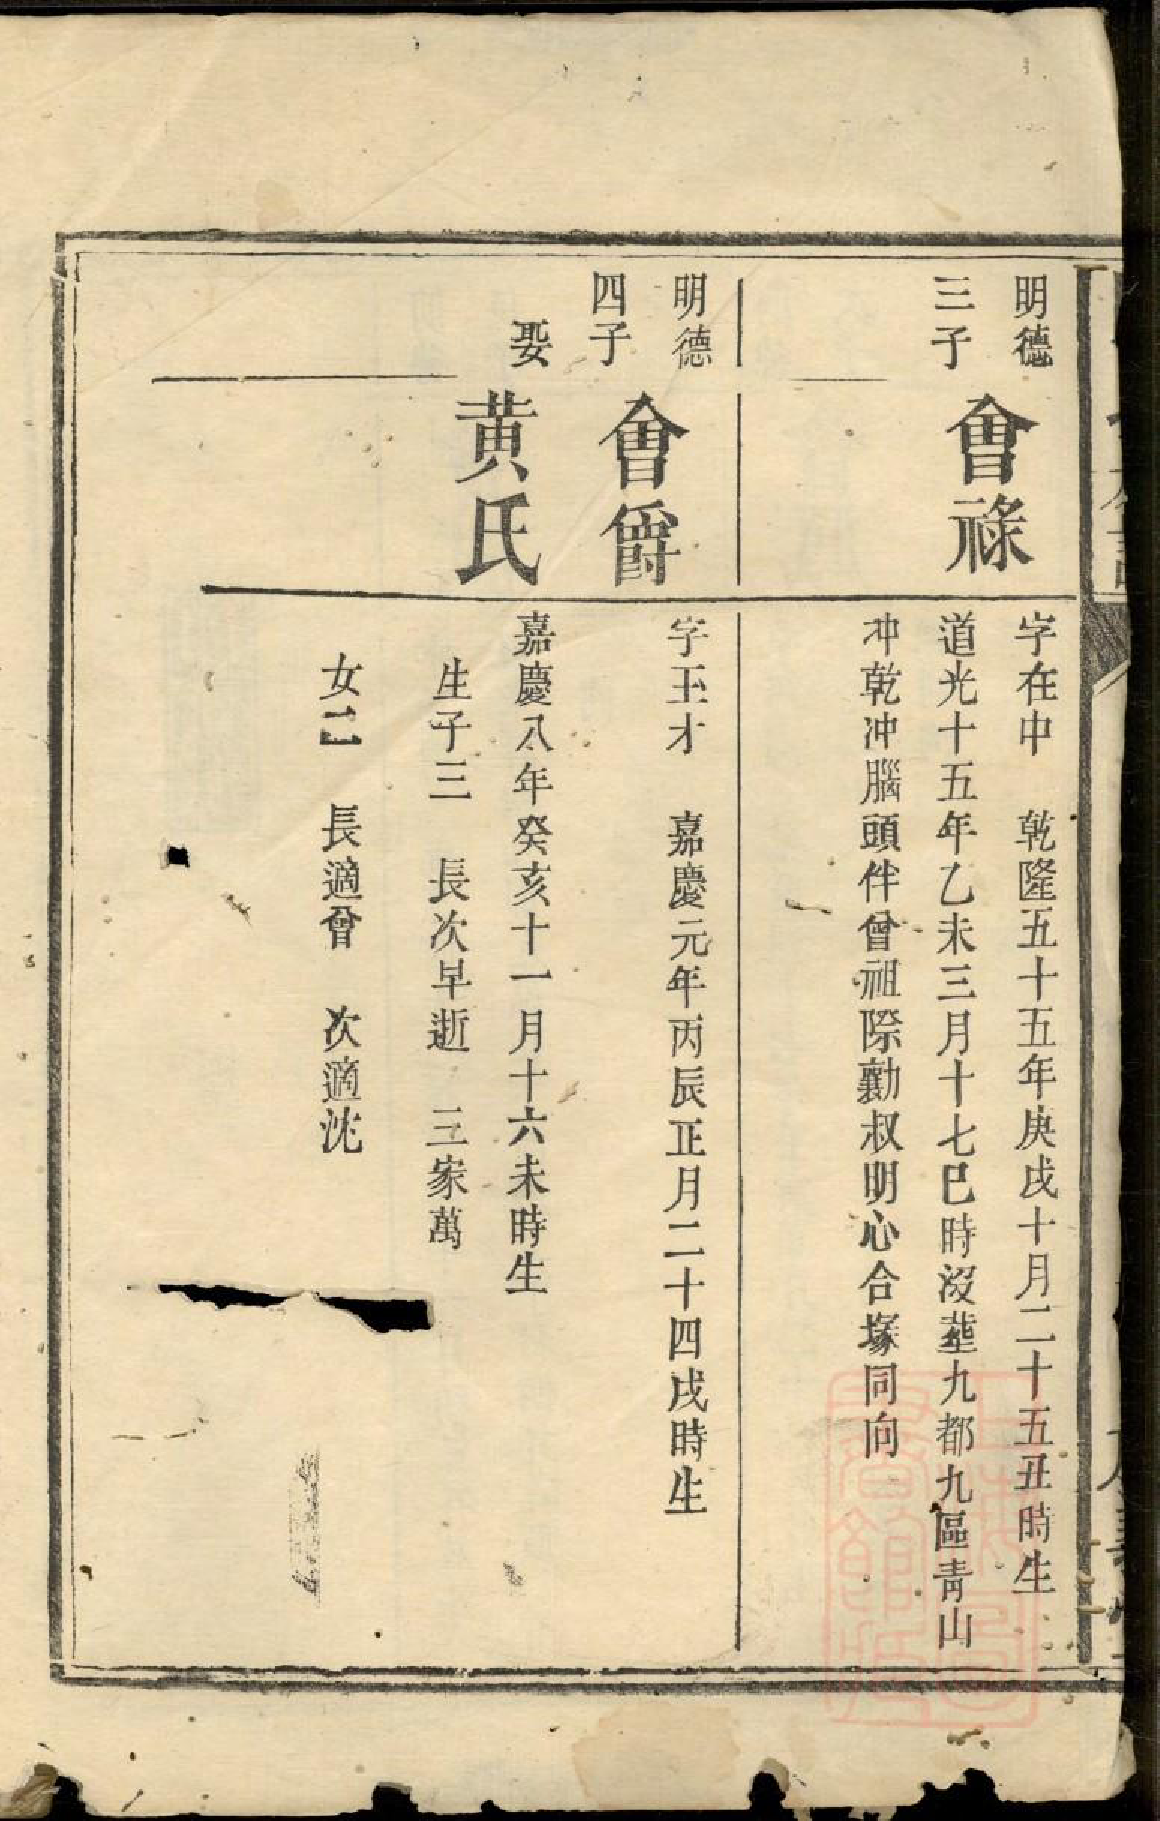 明德
三子
會祿
字在中　乾隆五十五年庚戌十月二十五丑時生
道光十五年乙未三月十七巳時沒塟九都九區青山
冲乾冲腦頭伴曾祖際勷叔明心合塚同向
明德
四子
會爵
字玉才　嘉慶元年丙辰正月二十四戌時生
娶
黄氏
嘉慶八年癸亥十一月十六未時生
生子三　長次早逝　三家萬
女二　長適曾　次適沈